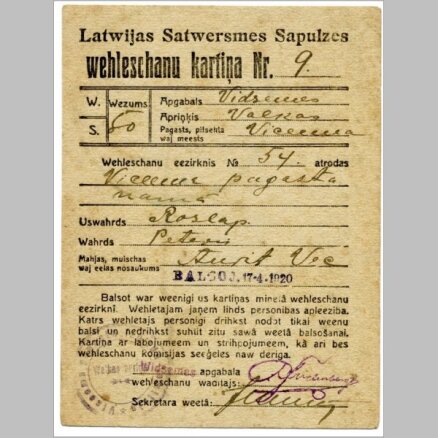 Latwijas Satwersmes Sapulzes
wehleschanu kartiņa Nr. 9.
W. Wezums Apgabals Vidzemes
S. 50 Apriņķis Valkas
Pagasts, pilsehta
waj meests
Wehleschanu eezirknis № 54. atrodas
pagasta
namā
Uswahrds
Wahrds
Mahjas, muischas
waj eelas nosaukums
BALSOJ. 17-4-1920
Balsot war weenigi us kartiņas minetā wehleschanu
eezirknī. Wehletajam jaņem lihds personibas apleeziba.
Katrs wehletajs personigi drihkst nodot tikai weenu
balsi un nedrihkst suhtit zitu sawā weetā balsošanai.
Kartiņa ar labojumeem un strihpojumeem, kā arī bes
wehleschanu komisijas seegeles naw deriga.
Widzemes apgabala
wehleschanu waditajs:
Sekretara weetā: